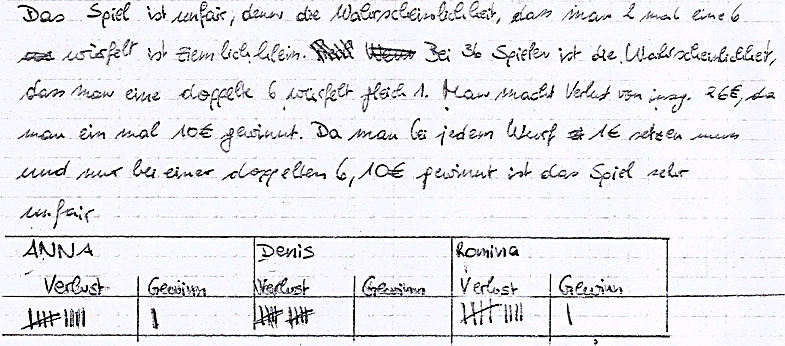 Das Spiel ist unfair, denn die Wahrscheinlichkeit, dass man 2 mal eine 6
würfelt ist ziemlich klein. Bei 36 Spielen ist die Wahrscheinlichkeit,
dass man eine doppelte 6 würfelt gleich 1. Man macht Verlust von insg. 26€, da
man ein mal 10€ gewinnt. Da man bei jedem Wurf 1€ setzen muss
und nur bei einer doppelten 6, 10€ gewinnt ist das Spiel sehr
unfair
ANNA Denis Romina
Verlust Gewinn Verlust Gewinn Verlust Gewinn